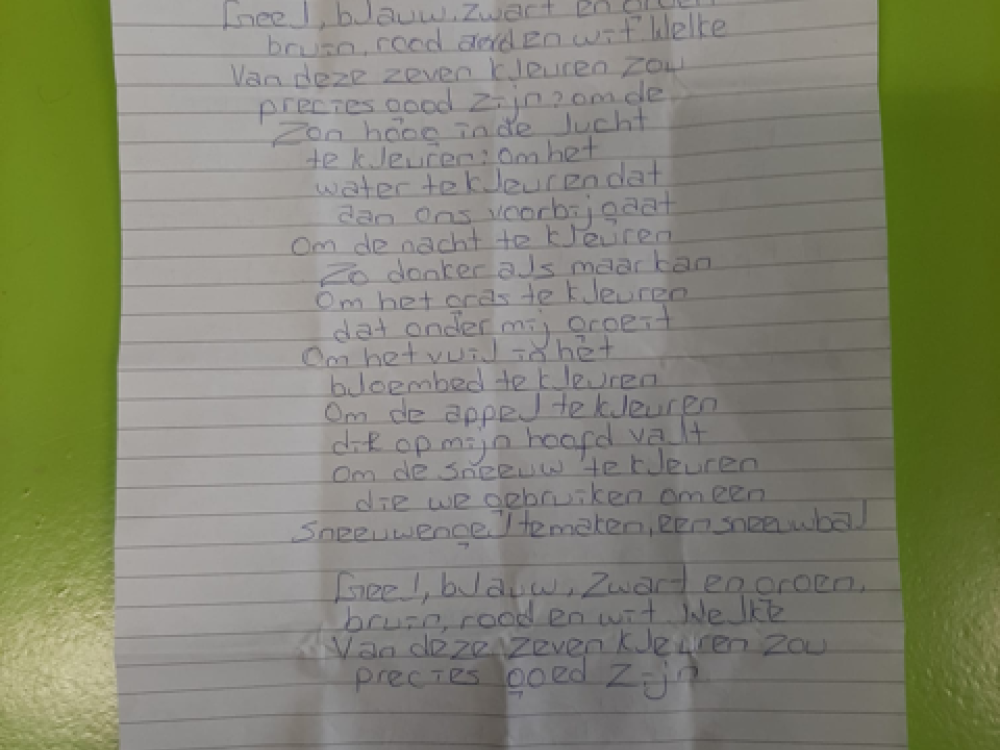 Geel, blauw, zwart en groen
bruin, rood en wit Welke
Van deze zeven kleuren zou
precies goed zijn? om de
Zon hoog in de lucht
te kleuren? om het
water te kleuren dat
aan ons voorbij gaat
Om de nacht te kleuren
Zo donker als maar kan
Om het gras te kleuren
dat onder mij groeit
Om het vuil in het
bloembed te kleuren
Om de appel te kleuren
die op mijn hoofd valt
Om de sneeuw te kleuren
die we gebruiken om een
Sneeuwengel te maken, een sneeuwbal
Geel, blauw, zwart en groen,
bruin, rood en wit Welke
Van deze zeven kleuren zou
precies goed zijn